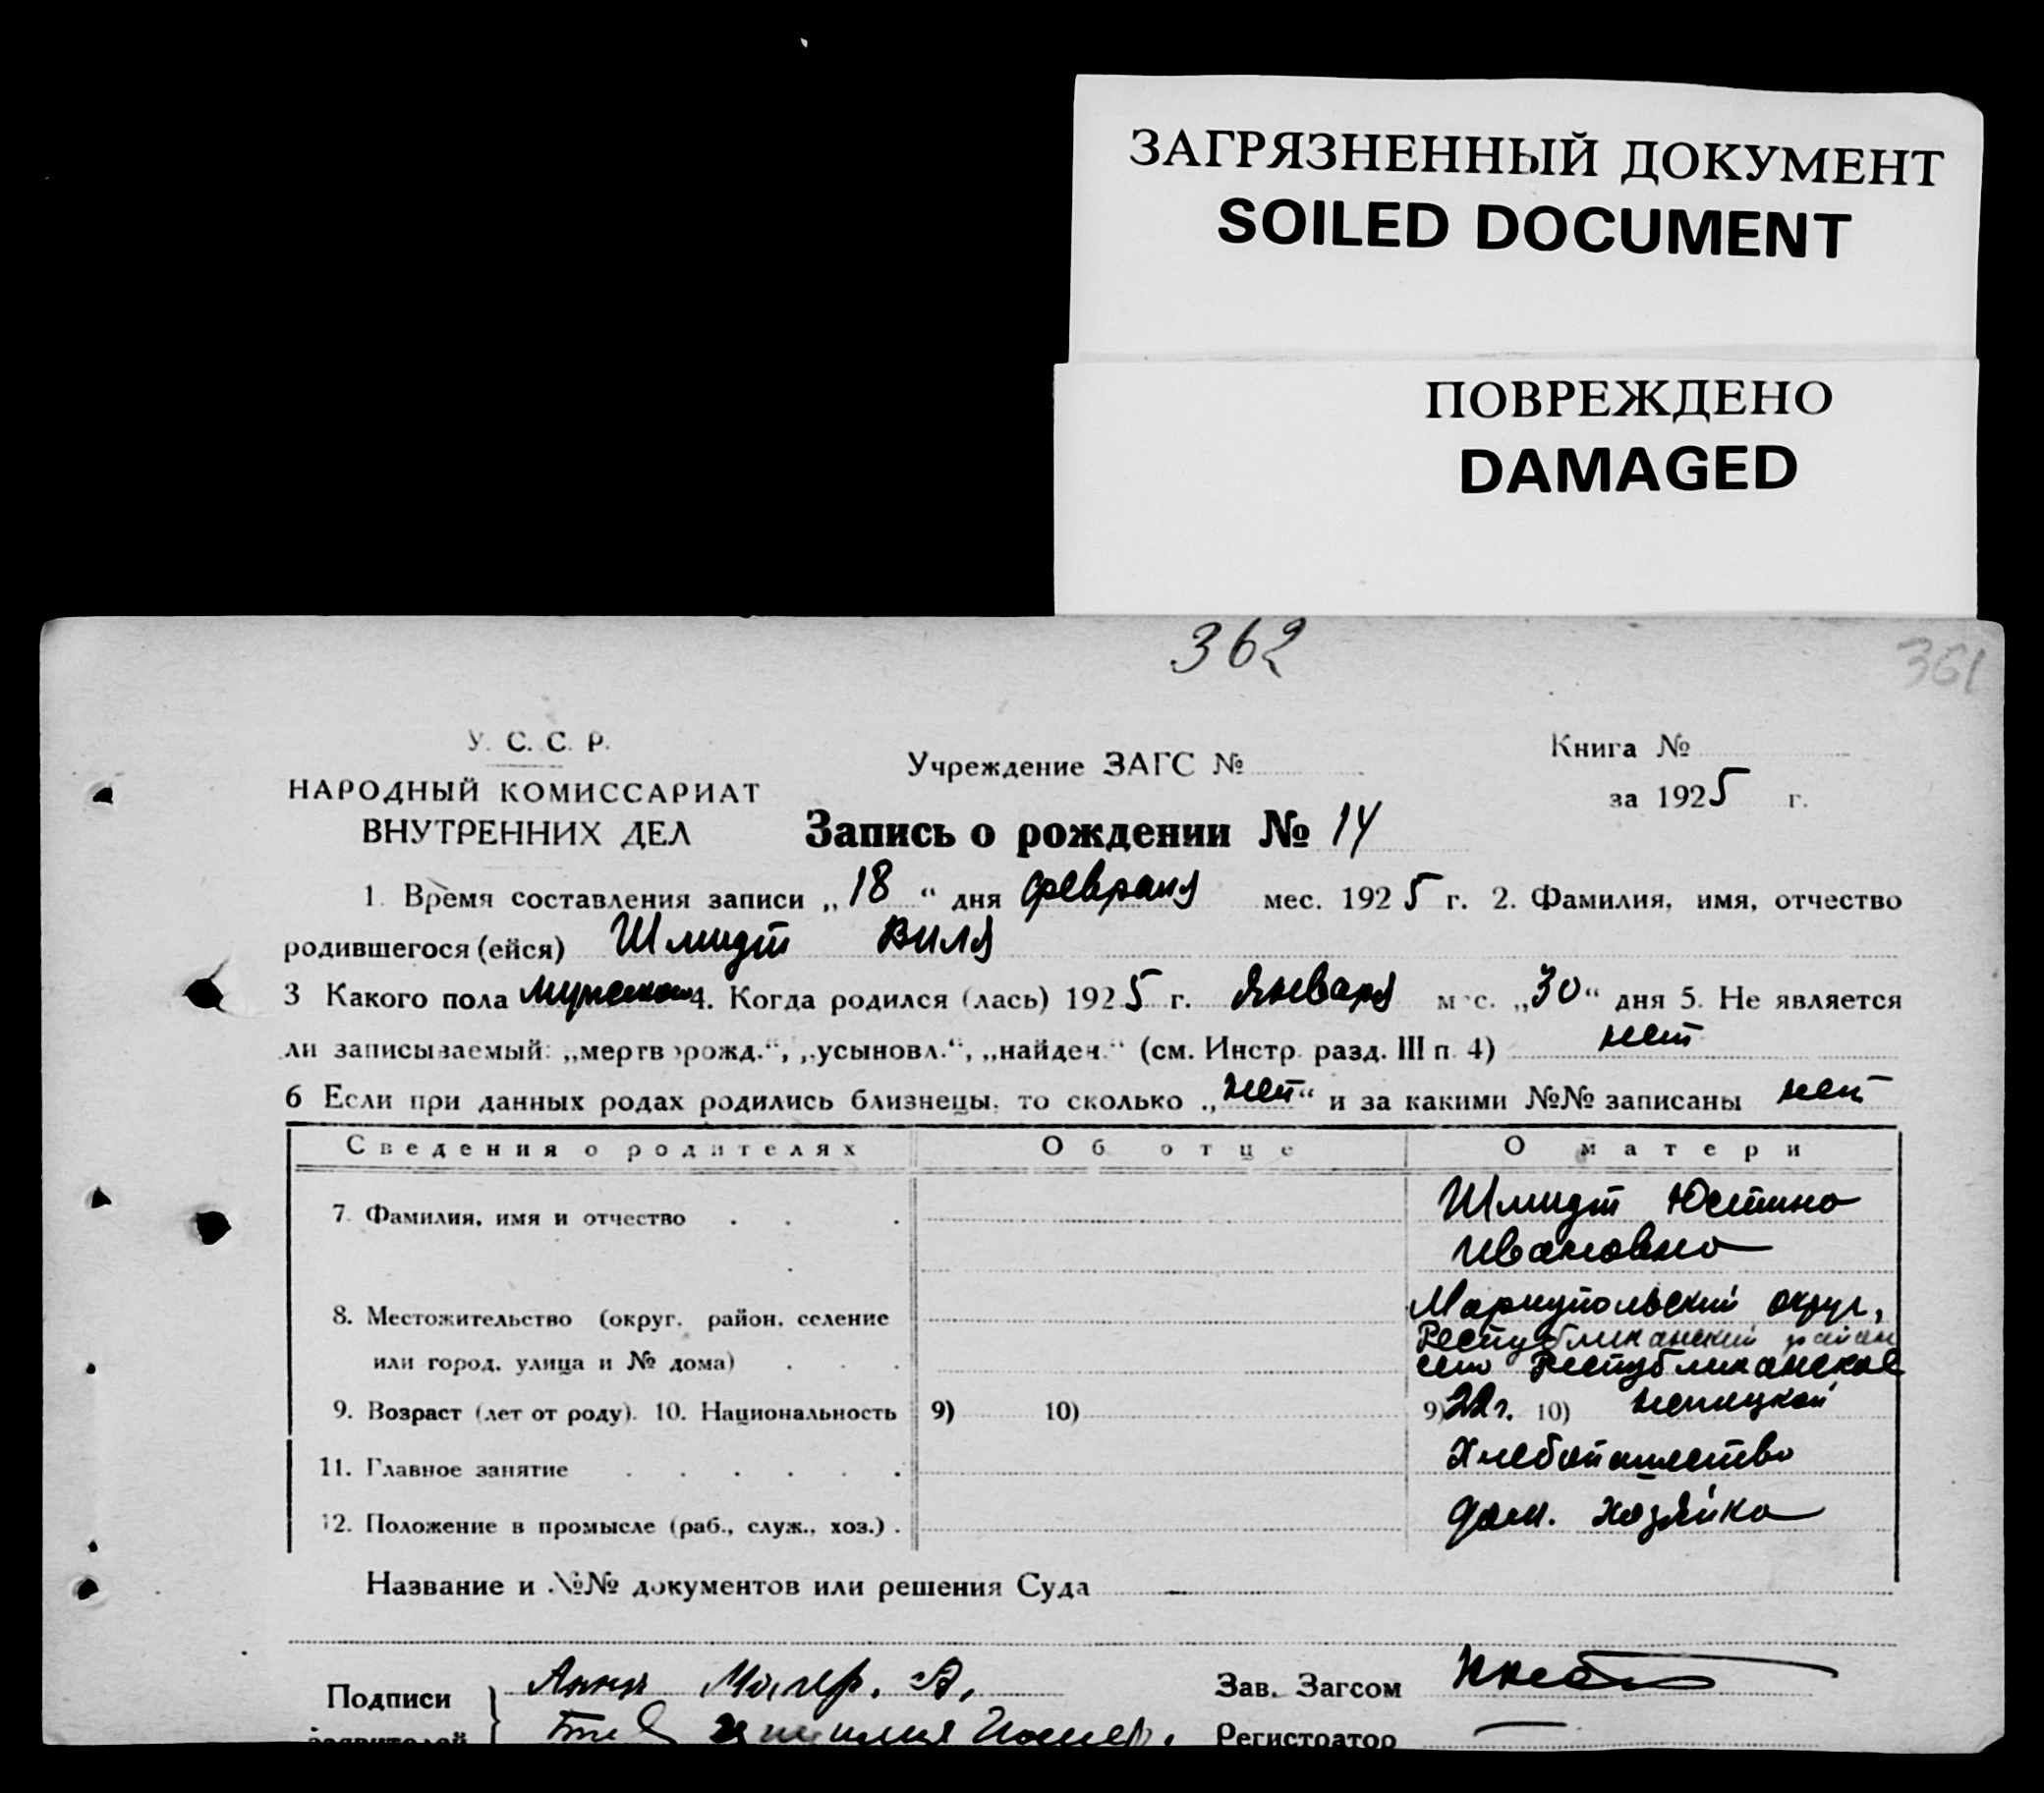 ЗАГРЯЗНЕННЫЙ ДОКУМЕНТ
SOILED DOCUMENT
ПОВРЕЖДЕНО
DAMAGED
362
361
У. С. С. Р.
НАРОДНЫЙ КОМИССАРИАТ
ВНУТРЕННИХ ДЕЛ
Учреждение ЗАГС №
Книга №
за 1925 г.
Запись о рождении № 14
1. Время составления записи „18“ дня февраля мес. 1925 г. 2. Фамилия, имя, отчество
родившегося (ейся) Шмидт Виля
3 Какого пола мужского 4. Когда родился (лась) 1925 г. Января мес. „30“ дня 5. Не является
ли записываемый: „мертворожд.“, „усыновл.“, „найден.“ (см. Инстр. разд. III п. 4) нет
6 Если при данных родах родились близнецы, то сколько „нет“ и за какими №№ записаны нет
Сведения о родителях Об отце О матери
7. Фамилия, имя и отчество Шмидт Юстина
Ивановна
8. Местожительство (округ, район, селение Мариупольский округ,
Республиканский район
или город, улица и № дома) село Республиканское
9. Возраст (лет от роду). 10. Национальность 9) 10) 9) 22 г. 10) немецкой
11. Главное занятие Хлебопашество
12. Положение в промысле (раб., служ., хоз.) дом. хозяйка
Название и №№ документов или решения Суда —
Подписи Анна А. Зав. Загсом
заявителей Регистратор —